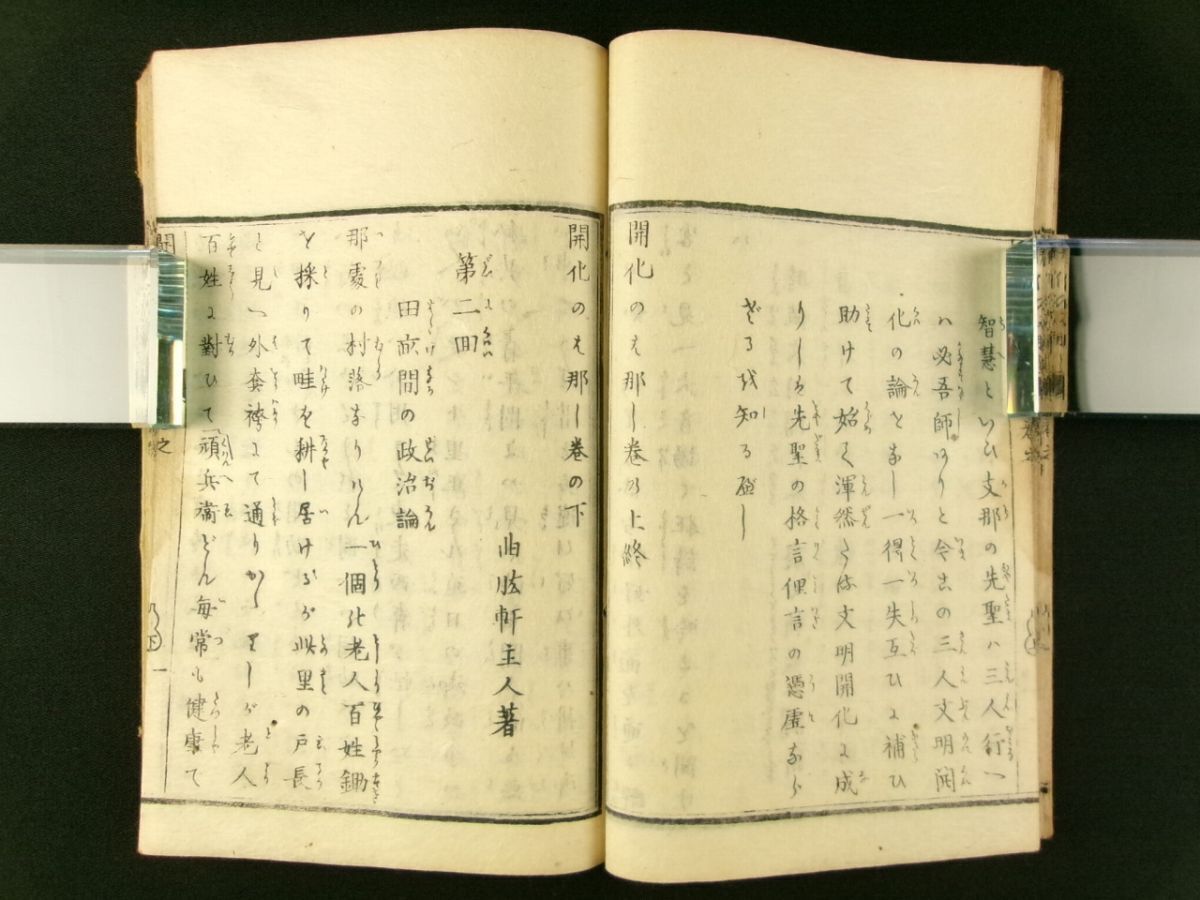 智慧といひ支那の先聖ハ三人行へ
ハ必吾師ありと今此の三人文明開
化の論をなし一得一失互ひに補ひ
助けて始て渾然たる文明開化に成
りしは先聖の格言俚言の憑虚なら
ざる我知る可し
開化のはなし巻の上終
開化のはなし巻の下
曲肱軒主人著
第二回
田畝間の政治論
那處の村落なりけん一個の老人百姓鋤
を採りて畦を耕し居けるが此里の戸長
と見へ外套袴にて通りかゝりしが老人
百姓に對ひて頑兵衛どん毎常も健康で
下 一